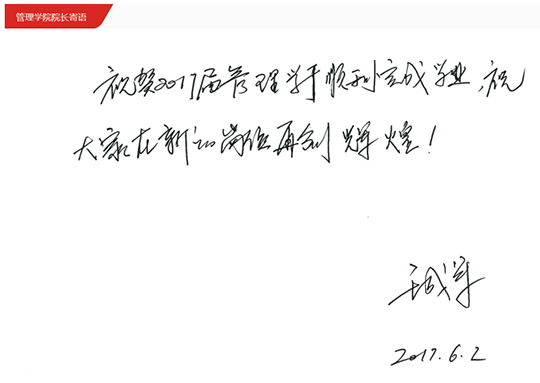 管理学院院长寄语
祝贺2017届管理学子顺利完成学业,祝
大家在新的岗位再创辉煌!
王成军
2017.6.2